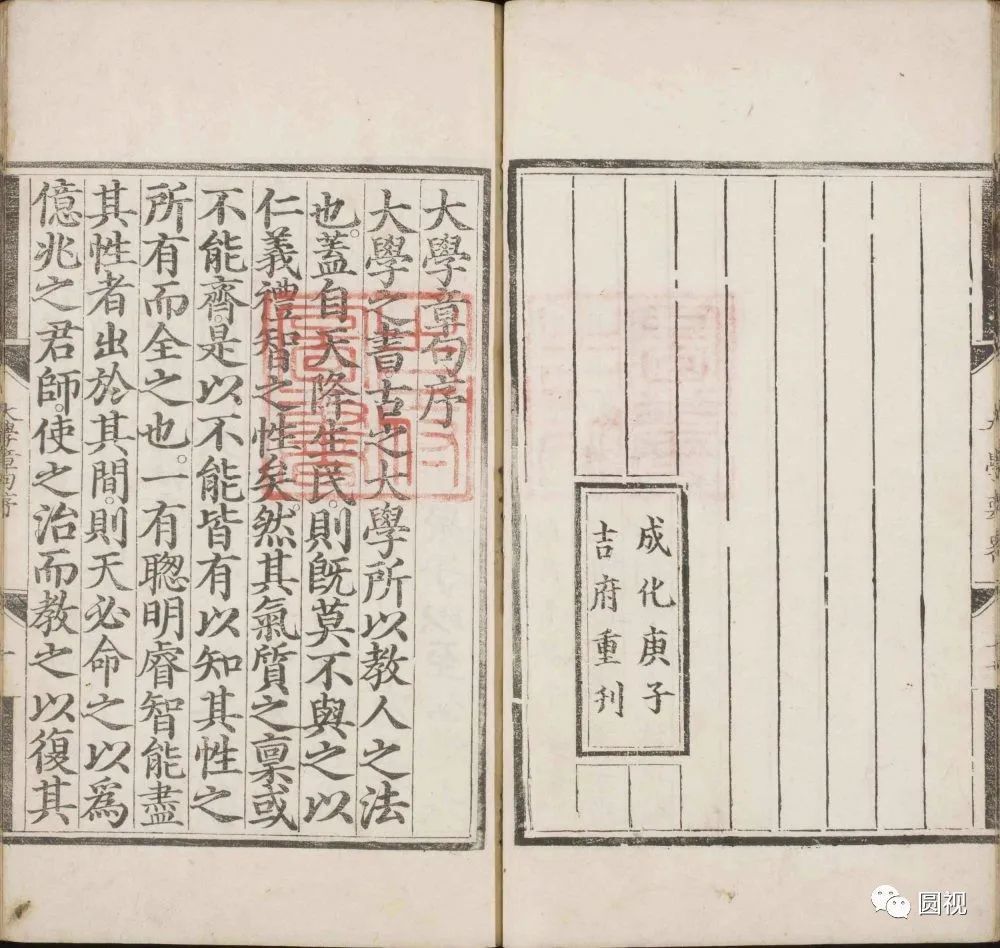 成化庚子
吉府重刊
大學章句序
大學之書古之大學所以教人之法
也。蓋自天降生民。則旣莫不與之以
仁義禮智之性矣。然其氣質之稟或
不能齊。是以不能皆有以知其性之
所有而全之也。一有聦明睿智能盡
其性者出於其間。則天必命之以爲
億兆之君師。使之治而教之以復其
大學章句序
圆视